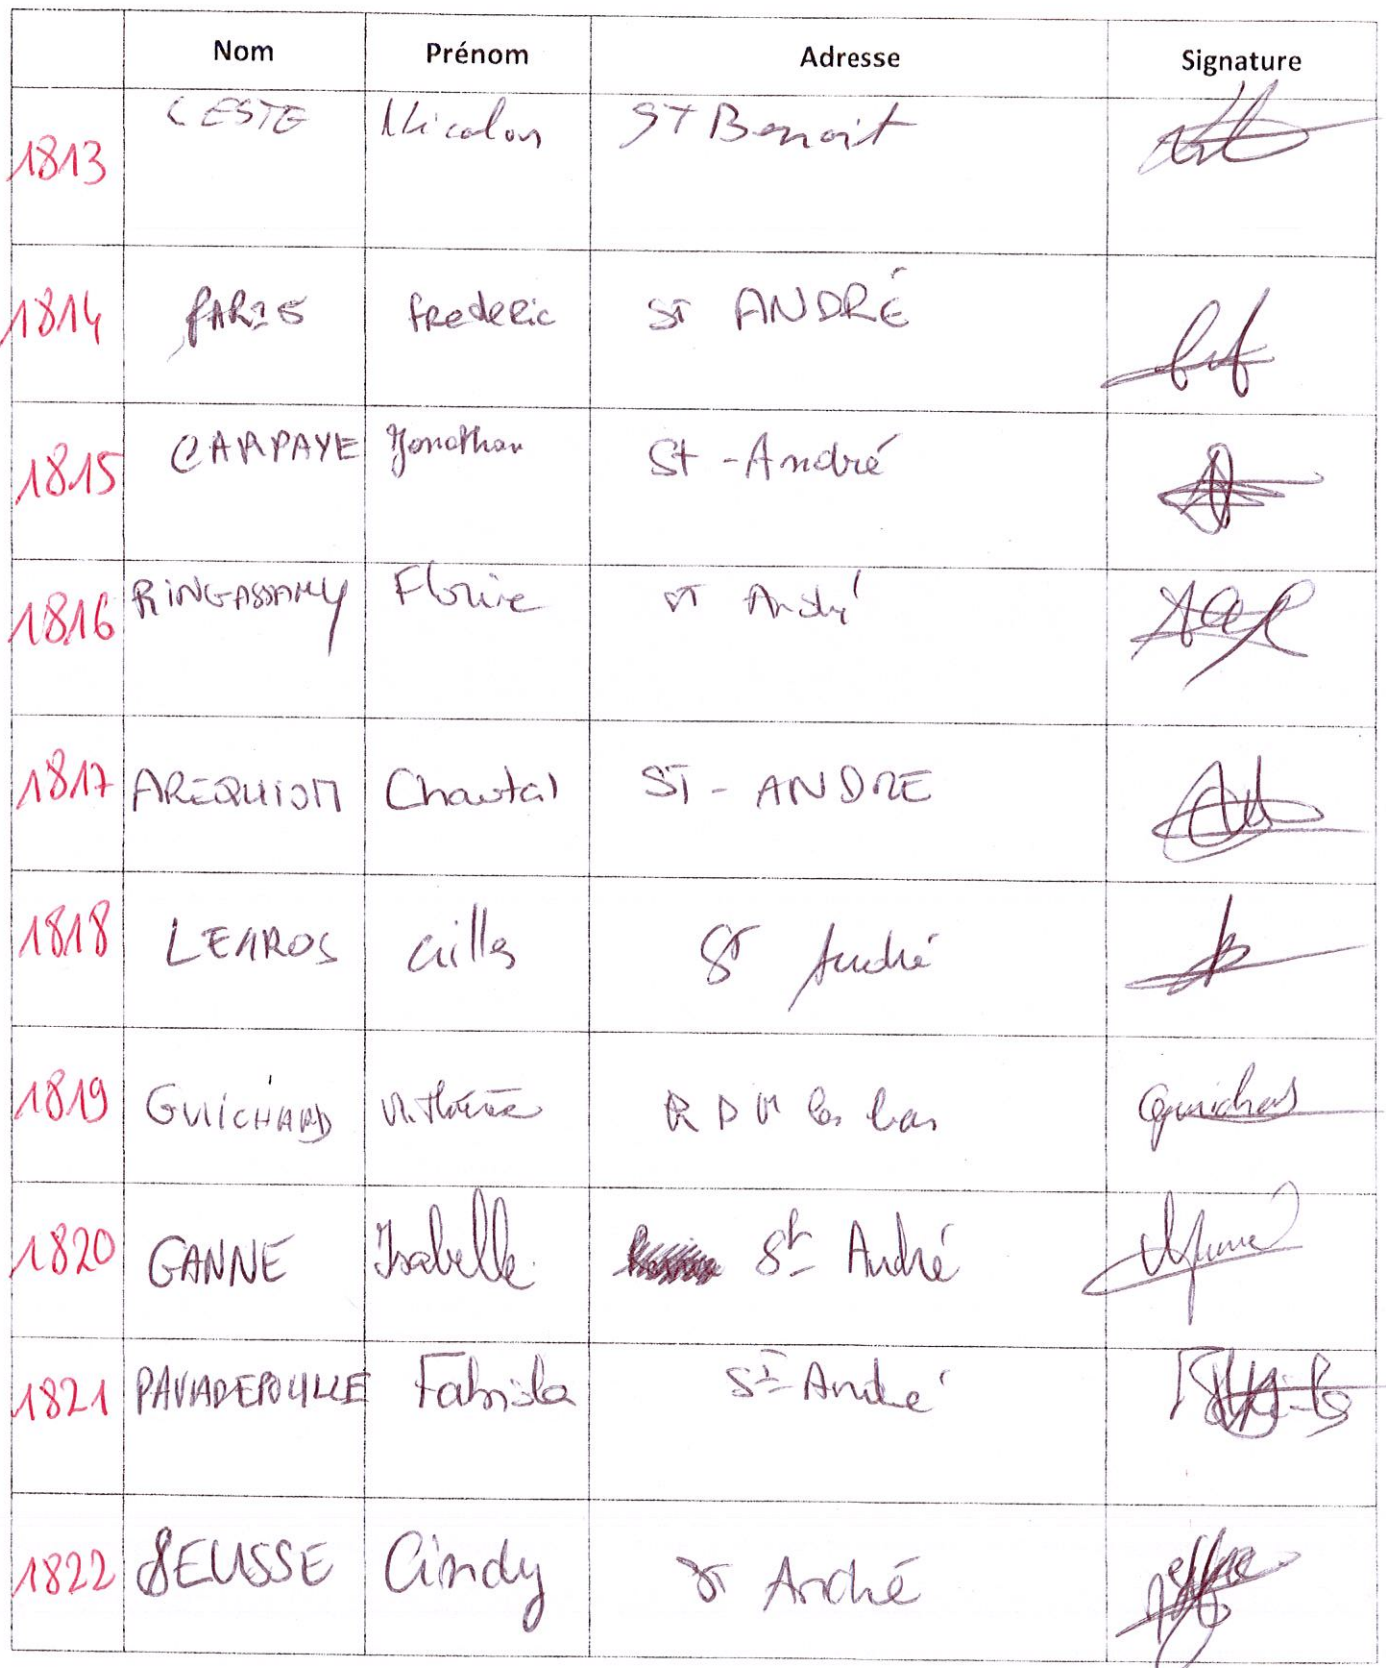 Nom Prénom Adresse Signature
1813 LESTE Nicolas ST Benoit
1814 PARIS frederic ST ANDRÉ
1815 CARPAYE Jonathan St-André
1816 RINGASSAMY Florine ST André
1817 AREQUION Chantal ST-ANDRE
1818 LEHROS Gilles ST André
1819 GUICHARD M.Thérèse R D M les bas
1820 GANNE Isabelle St André
1821 PAVIADEPOULLE Fabiola St-André
1822 SEUSSE Cindy ST André